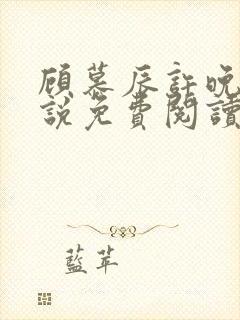 顾慕辰許晚
說免費閱讀
藍苹